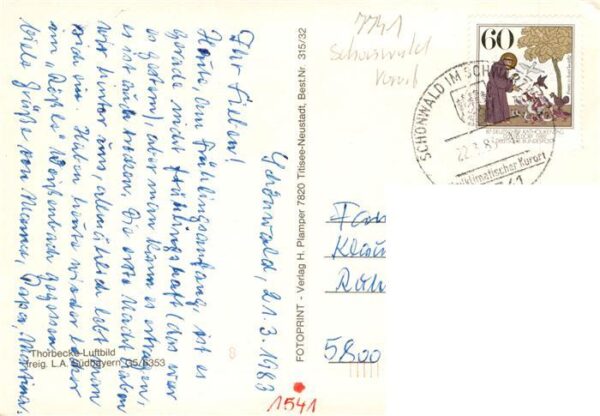 Schönwald, 21.3.1983
Ihr Lieben!
Heute, am Frühlingsanfang, ist es
gerade nicht frühlingshaft (das war
es gestern), aber man kann es ertragen,
es ist auch trocken. Die erste Nacht haben
wir hinter uns,
wir ein. Haben heute wieder
im "Rößle" gegessen.
Viele Grüße von Mama, Papa, Martina.
Thorbecke-Luftbild
freig. L.A. Südbayern G5/6353
8
FOTOPRINT - Verlag H. Plamper 7820 Titisee-Neustadt, Best.Nr. 315/32
7741
Schönwald
60
DEUTSCHE BUNDESPOST
SCHÖNWALD IM SCHWARZ
22.3.83
Heilklimatischer Kurort
7741
Fam
Klaus
5800
1541